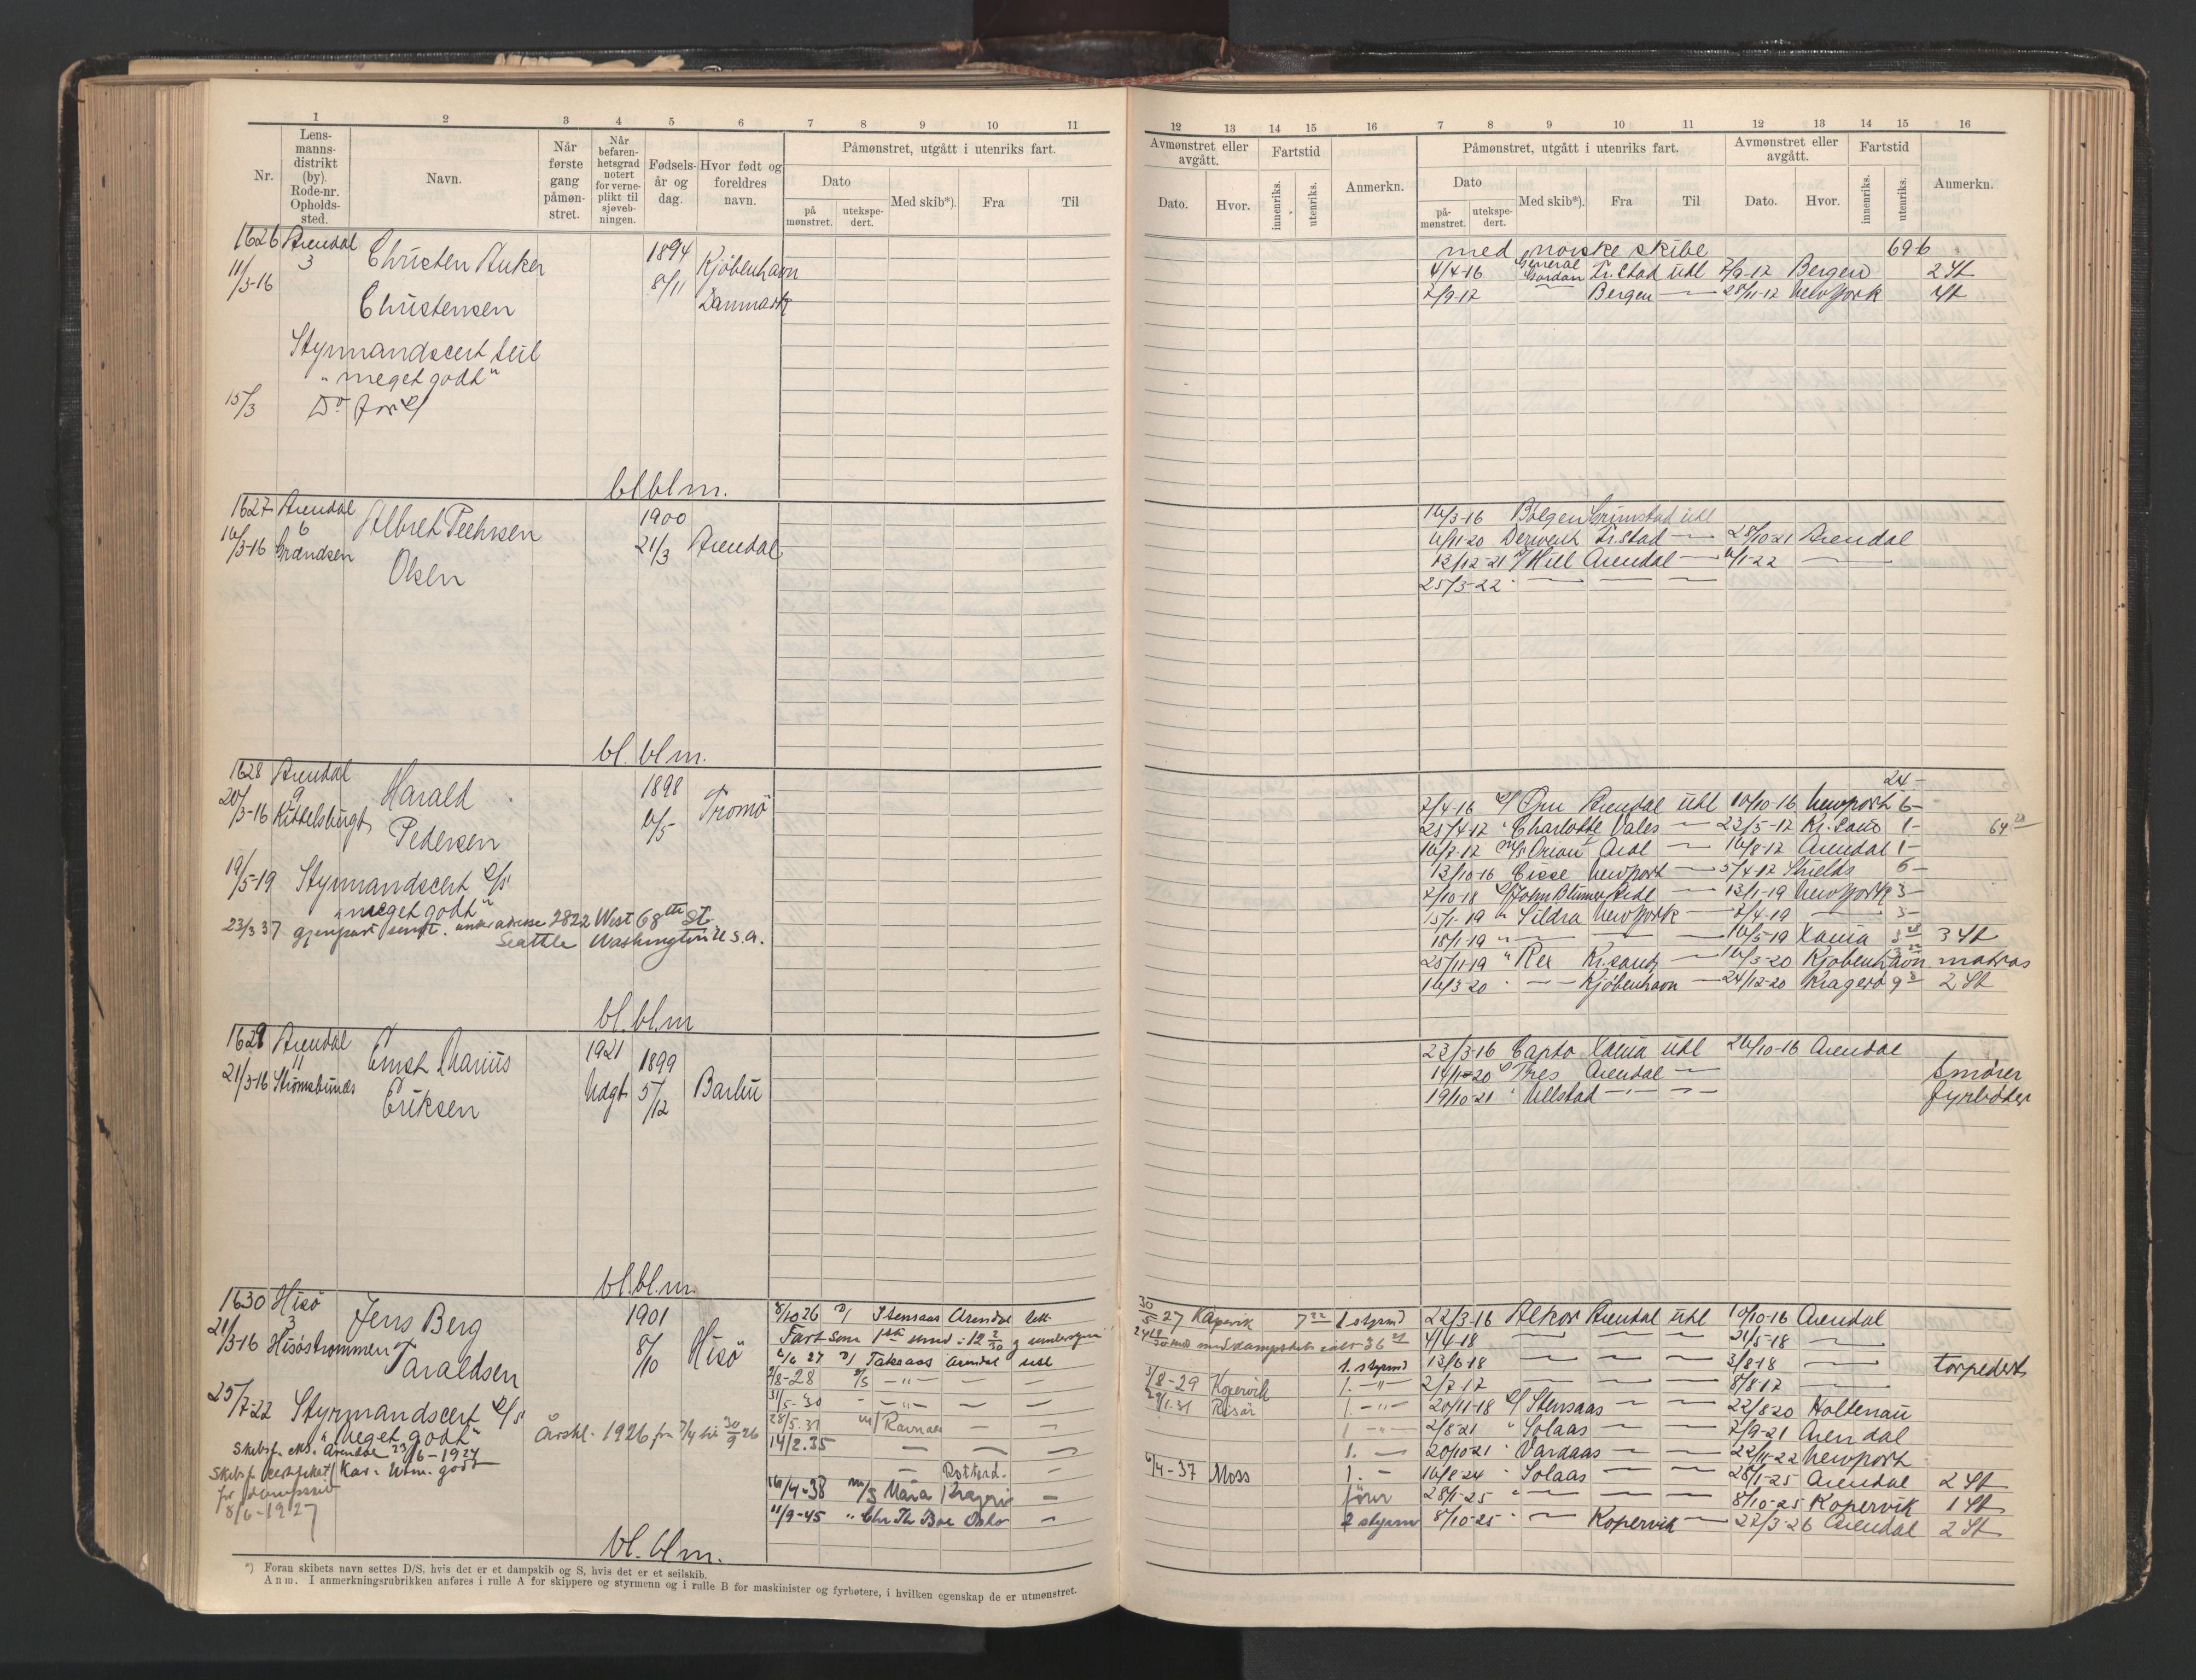 1 2 3 4 5 6 7 8 9 10 11
Nr.
Lens-
manns-
distrikt
(by).
Rode-nr.
Opholds-
sted.
Navn.
Når
første
gang
påmøn-
stret.
Når
befaren-
hetsgrad
notert
for verne-
plikt til
sjøveb-
ningen.
Fødsels-
år og
dag.
Hvor født og
foreldres
navn.
Påmønstret, utgått i utenriks fart.
Dato
på
mønstret.
utekspe-
dert.
Med skib*).
Fra
Til
1626 Arendal
3
11/3-16
Christen Anker
Christensen
1894
8/11
Kjøbenhavn
Danmark
Styrmandscert seil
"meget godt"
15/3 Do for
bl.bl.m.
1627 Arendal
6
16/3-16 Grændsen
Albret Pethrsen
Olsen
1900
21/3 Arendal
bl.bl.m.
1628 Arendal
9
20/3-16 Kittelsbugt
Harald
Pedersen
1898
6/5
Tromö
19/5-19 Styrmandscert
"meget godt"
23/3 37 gjenpart sendt. under adresse 2822 West 68th St.
Seattle Washington U.S.A.
bl.bl.m
1629 Arendal
11
21/3-16 Strömsbunes
Ernst Marius
Eriksen
1921
Udgt
1899
5/12
Barbu
bl.bl.m.
1630 Hisö
3
21/3-16 Hisöströmmen
Jens Berg
Taraldsen
1901
8/10
Hisö
25/7-22 Styrmandscert
"Meget godt"
Årskl. 1926 fra 7/4 til 30/9 26
Skibsf. eks. Arendal 23/6-1927
Skibsf. certifikat Kar. Utm. godt
for dampskib
8/6-1927
8/10 26 D/ Stensaas Arendal
6/6 27 D/ Taksaas Arendal utl
9/8-28 D/S — " — — —
31/5-30 — " — — —
28/5.31 m/ Ravnaas — —
14/2.35 — — —
— Rotterd.
16/4-38 m/S Maria Kragerø —
11/9-45 " Chr. Th. Boe Oslo —
bl.bl.m.
*) Foran skibets navn settes D/S, hvis det er et dampskib og S, hvis det er et seilskib.
Anm. I anmerkningsrubrikken anføres i rulle A for skippere og styrmenn og i rulle B for maskinister og fyrbøtere, i hvilken egenskap de er utmønstret.
12 13 14 15 16 7 8 9 10 11 12 13 14 15 16
Avmønstret eller
avgått.
Fartstid
Dato.
Hvor.
innenriks.
utenriks.
Anmerkn.
Påmønstret, utgått i utenriks fart.
Dato
på-
mønstret.
utekspe-
dert.
Med skib*).
Fra
Til
Avmønstret eller
avgått.
Dato.
Hvor.
Fartstid
innenriks.
utenriks.
Anmerkn.
med norske skibe 696
4/4-16 General Gordon Fr.stad utl 7/9-17 Bergen 2 St
7/9-17 — Bergen — 28/11-17 Newyork St
16/3-16 Bölgen Grimstad utl
6/11-20 Derwent Fr.stad — 28/10-21 Arendal
12/12-21 Hill Arendal — 6/1-22 —
25/3-22 — — —
24-
7/4-16 Örn Arendal utl 10/10-16 Newport 6-
25/4-17 Charlotte Vales — 23/5-17 Kr.sand 1-
16/7-17 Orion Aral — 16/8-17 Arendal 1-
13/10-16 Cisse Newport — 5/4-17 Shields 6-
7/10-18 John Blumer Aredl — 13/1-19 Newyork 3-
15/1-19 " Sildra Newyork — 7/4-19 — 3-
18/1-19 " — — — 16/5-19 Xania 3 St
25/11-19 " Rex Kr.sand — 16/3-20 Kjøbenhavn matros
16/3-20 — Kjøbenhavn — 24/12-20 Kragerö 2 St
23/3-16 Capto Xania utl 26/10-16 Arendal
14/1-20 Tres Arendal — Smörer
19/10-21 " Ullstad — — fyrbøter
30/5 27 Kopervik 1 styrmd 22/3-16 Alkor Arendal utl 10/10-16 Arendal
4/4-18 — — — 21/5-18 —
1. styrmd 13/6-18 — — — 3/8-18 — torpedert
3/8-29 Kopervik 1. — " — 2/7-17 — — — 8/8-17 —
29/1.31 Risör 1 — " — 20/11-18 Stensaas — — 22/8-20 Holtenau
2/8-21 " Solaas — — 7/9-21 Arendal
1. — 20/10-21 " Vardaas — — 22/11-22 Newport
6/4-37 Moss 1. — 16/8-24 " Solaas — — 28/1-25 Arendal 2 St
förer 28/1-25 " — — — 8/10-25 Kopervik 1 St
2 styrm 8/10-25 " — Kopervik — 22/3-26 Arendal 2 St